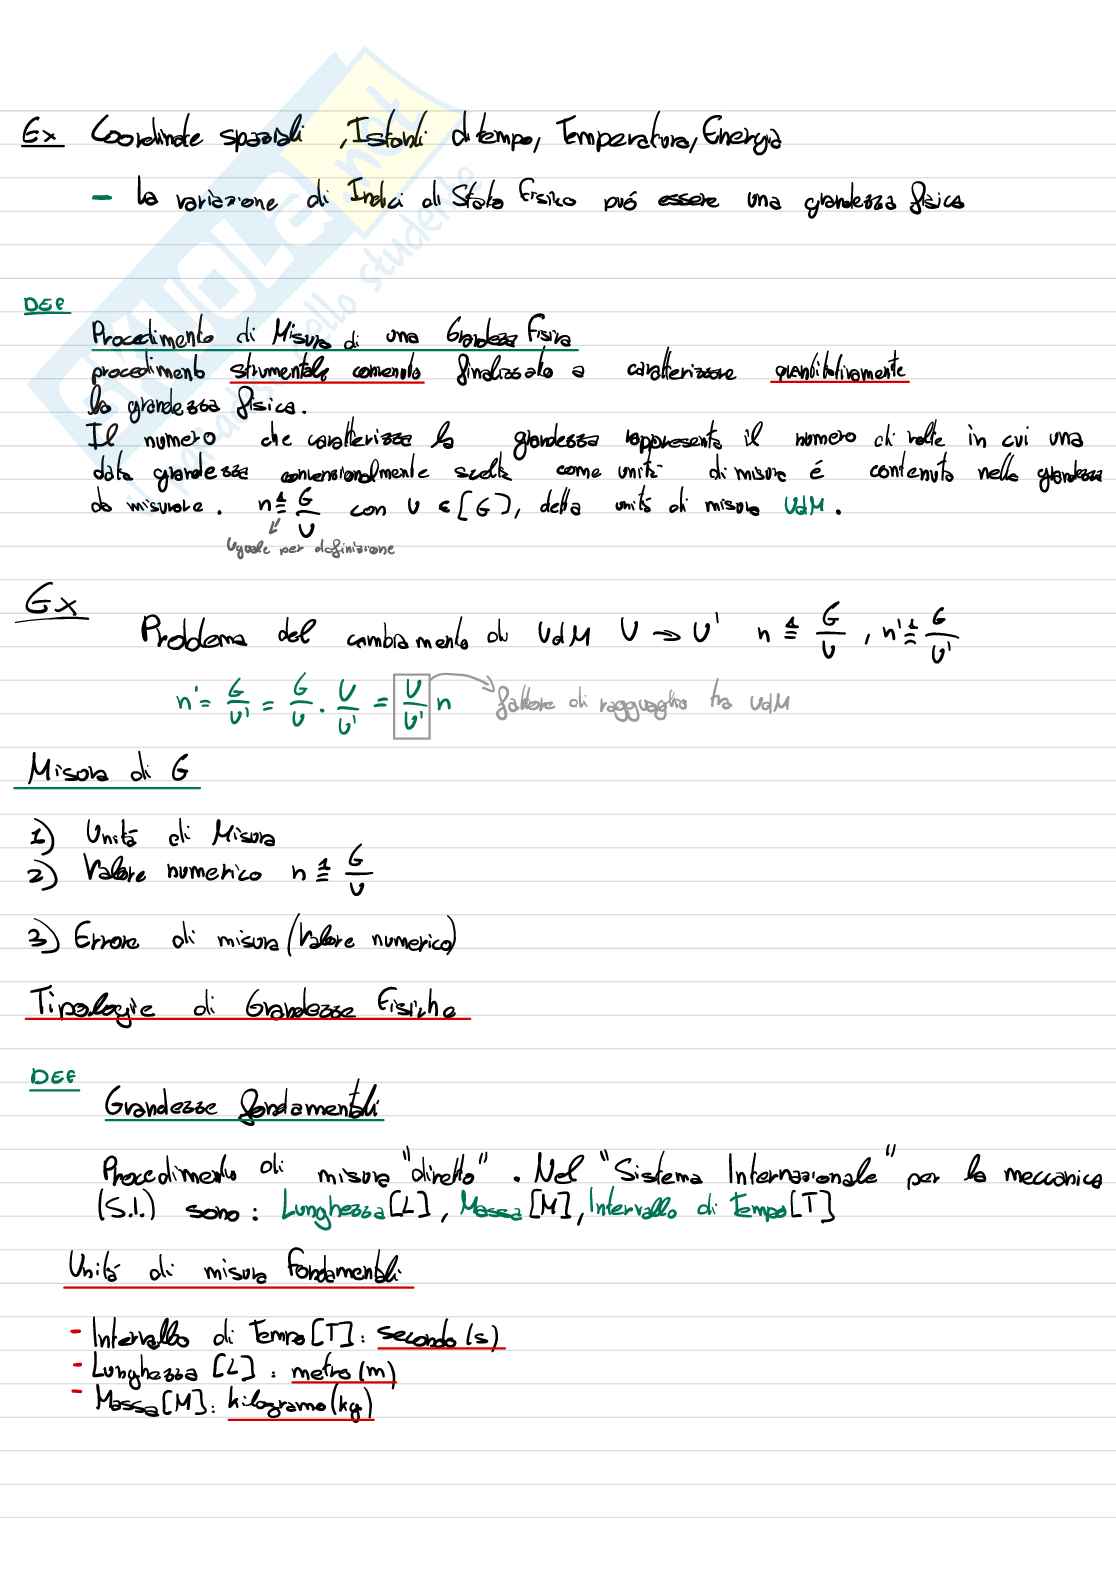 Ex Coordinate spaziali , Istanti di tempo, Temperatura, Energia
- la variazione di Indici di Stato Fisico può essere una grandezza fisica
DEF
Procedimento di Misura di una Grandezza Fisica
procedimento strumentale finalizzato a caratterizzare quantitativamente
la grandezza fisica.
Il numero che caratterizza la grandezza rappresenta il numero di volte in cui una
data grandezza convenzionalmente scelta come unità di misura é contenuta nella grandezza
da misurare. n ≜ G/U con U ∈ [G], detta unità di misura UdM.
Uguale per definizione
Ex Problema del cambiamento di UdM U → U' n ≜ G/U , n' ≜ G/U'
n' = G/U' = G/U · U/U' = U/U' n fattore di ragguaglio tra UdM
Misura di G
1) Unità di Misura
2) Valore numerico n ≜ G/U
3) Errore di misura (Valore numerico)
Tipologie di Grandezze Fisiche
DEF
Grandezze fondamentali
Procedimento di misura "diretto". Nel "Sistema Internazionale" per la meccanica
(S.I.) sono: Lunghezza [L], Massa [M], Intervallo di Tempo [T]
Unità di misura Fondamentali
- Intervallo di Tempo [T]: secondo (s)
- Lunghezza [L]: metro (m)
- Massa [M]: kilogramo (kg)